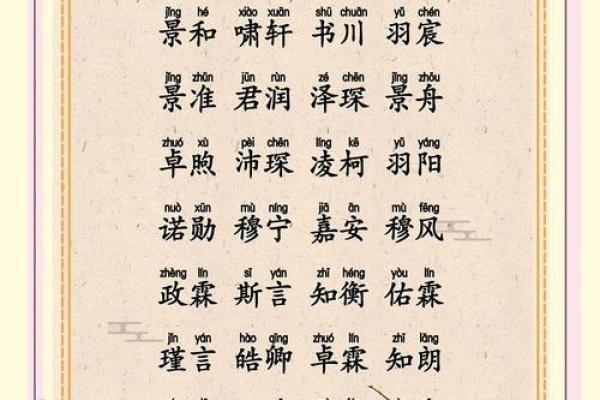 jǐng hé xiào xuān shū chuān yǔ chén
景和 啸轩 书川 羽宸
jǐng zhǔn jūn rùn zé chēn jǐng zhōu
景准 君润 泽琛 景舟
zhuó xù pèi chēn líng kē yǔ yáng
卓煦 沛琛 凌柯 羽阳
nuò xūn mù níng jiā ān mù fēng
诺勋 穆宁 嘉安 穆风
zhèng lín sī yán zhī héng yòu lín
政霖 斯言 知衡 佑霖
jǐn yán hào qīng zhuó lín zhī lǎng
瑾言 皓卿 卓霖 知朗